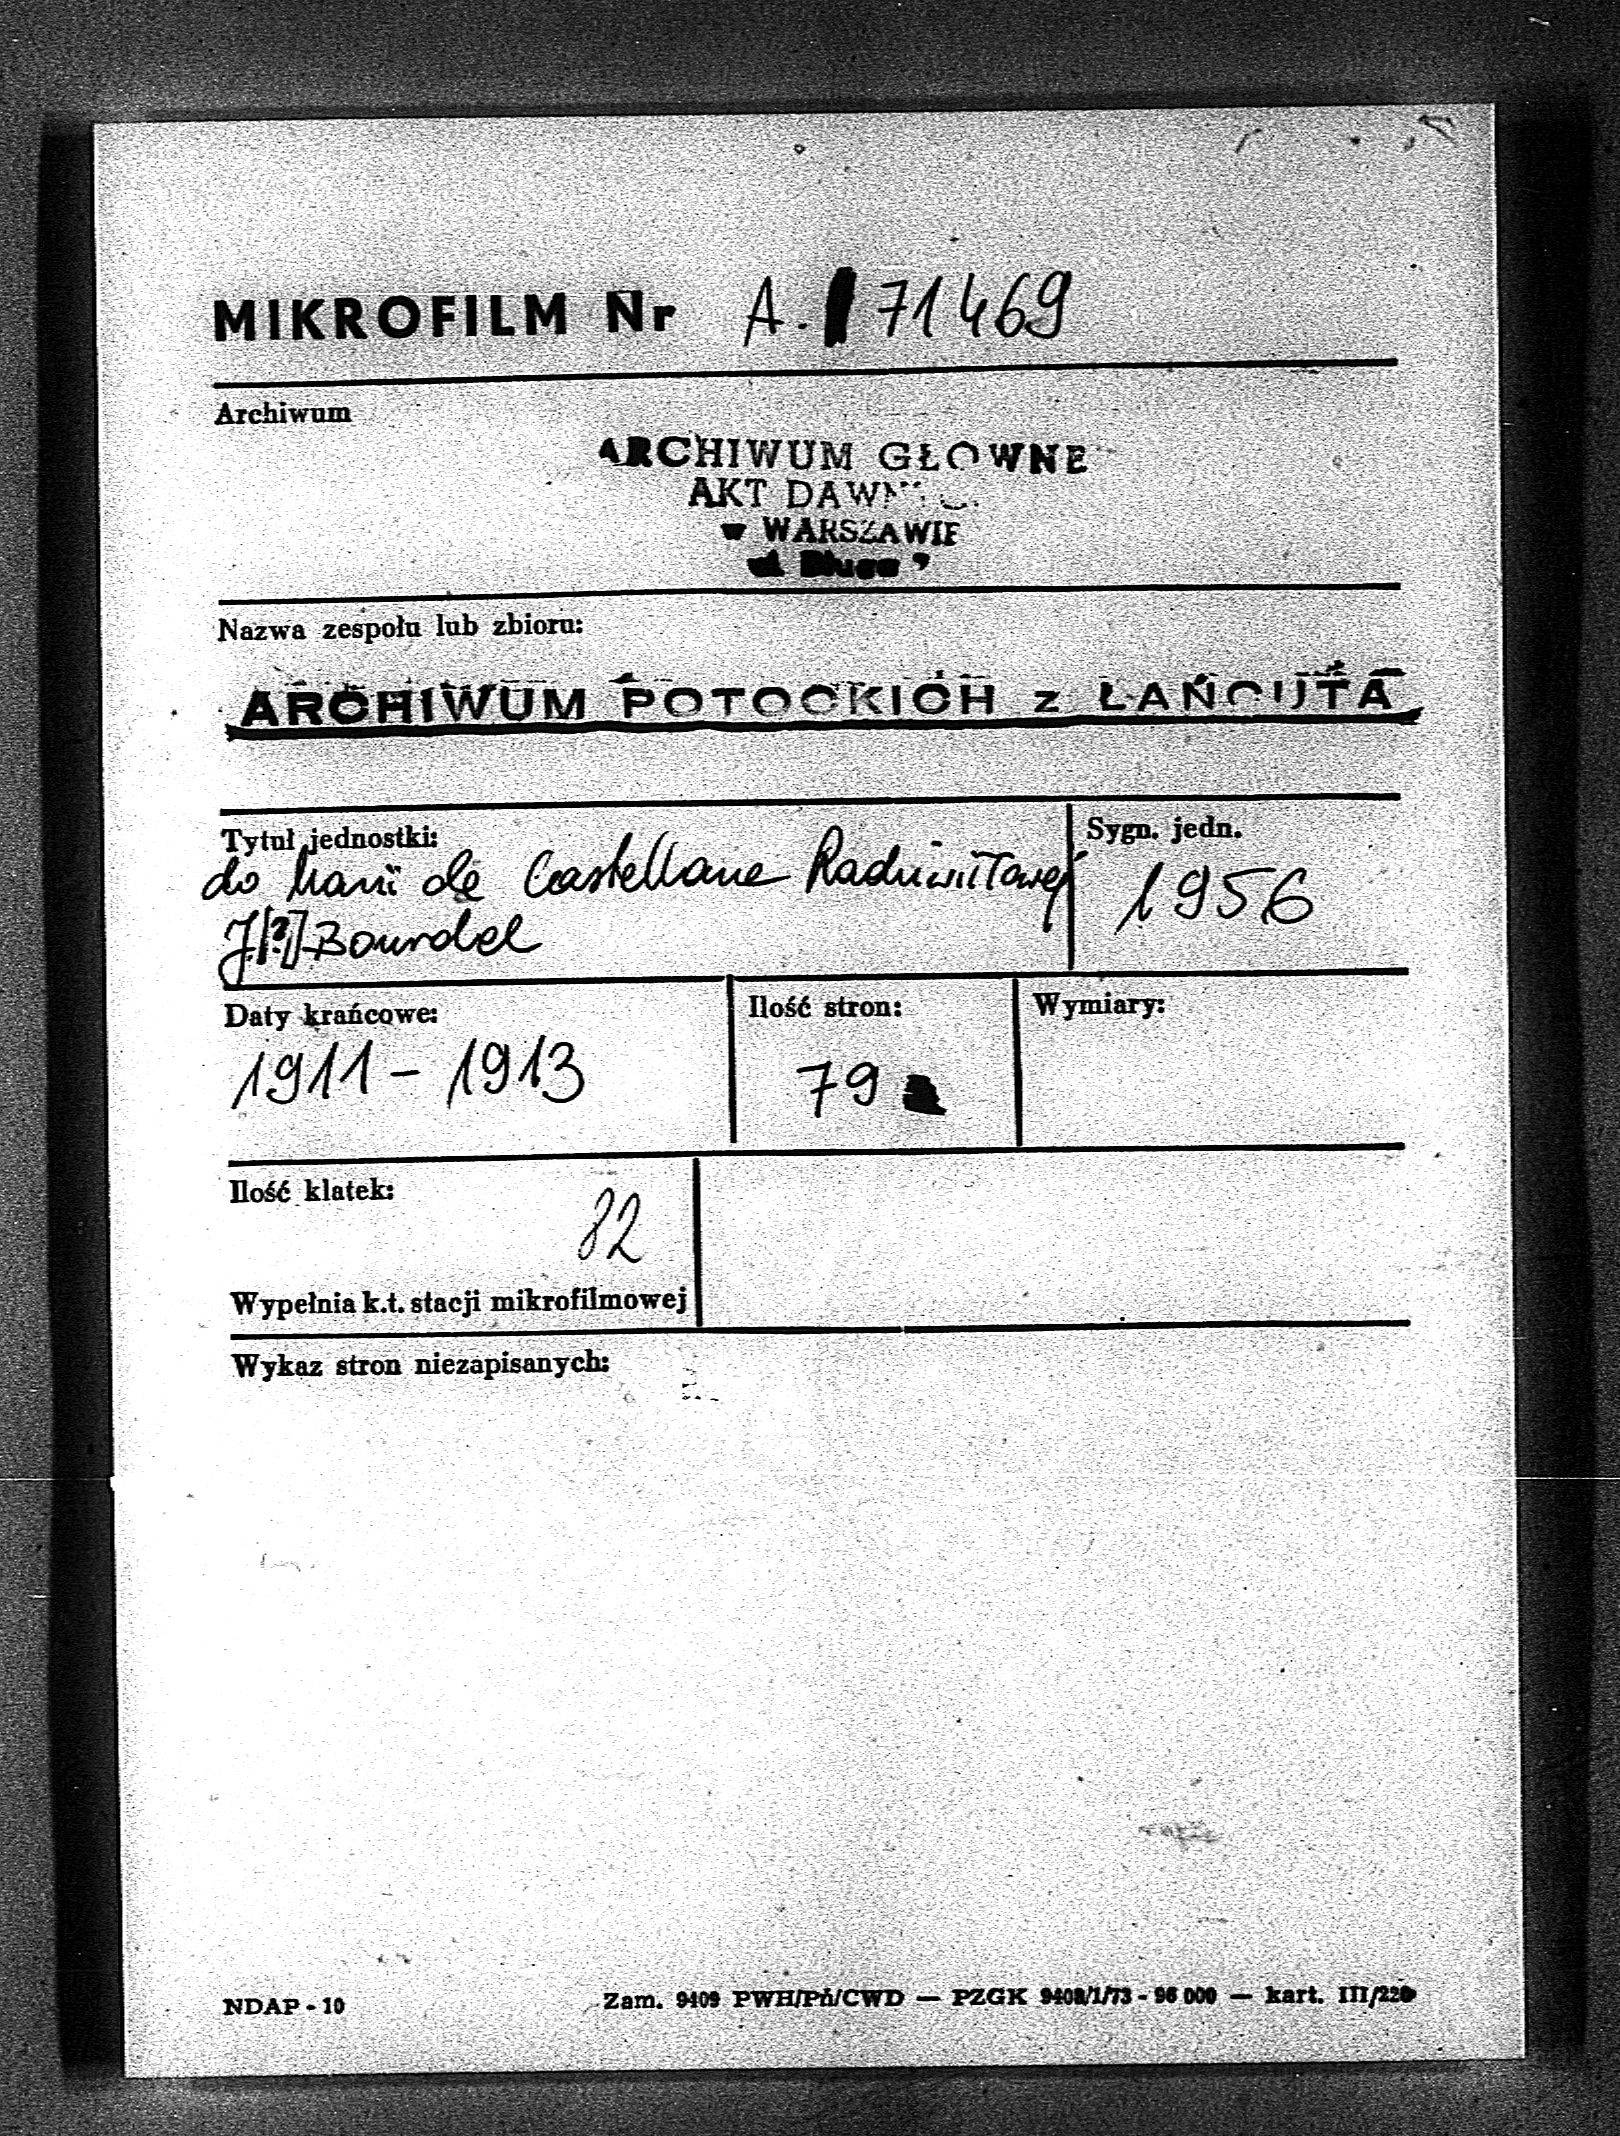 MIKROFILM Nr A. 71469
Archiwum
ARCHIWUM GŁOWNE
AKT DAWNYC
w WARSZAWIE
ul Długa 7
Nazwa zespołu lub zbioru:
ARCHIWUM POTOCKICH z ŁAŃCUTA
Tytuł jednostki:
do Marii de Castellane Radziwiłłowej
J.[?] Bourdel
Sygn. jedn.
1956
Daty krańcowe:
1911 - 1913
Ilość stron:
79
Wymiary:
Ilość klatek:
82
Wypełnia k.t. stacji mikrofilmowej
Wykaz stron niezapisanych:
NDAP - 10
Zam. 9409 PWH/Pń/CWD — PZGK 9408/1/73 - 96 000 — kart. III/220